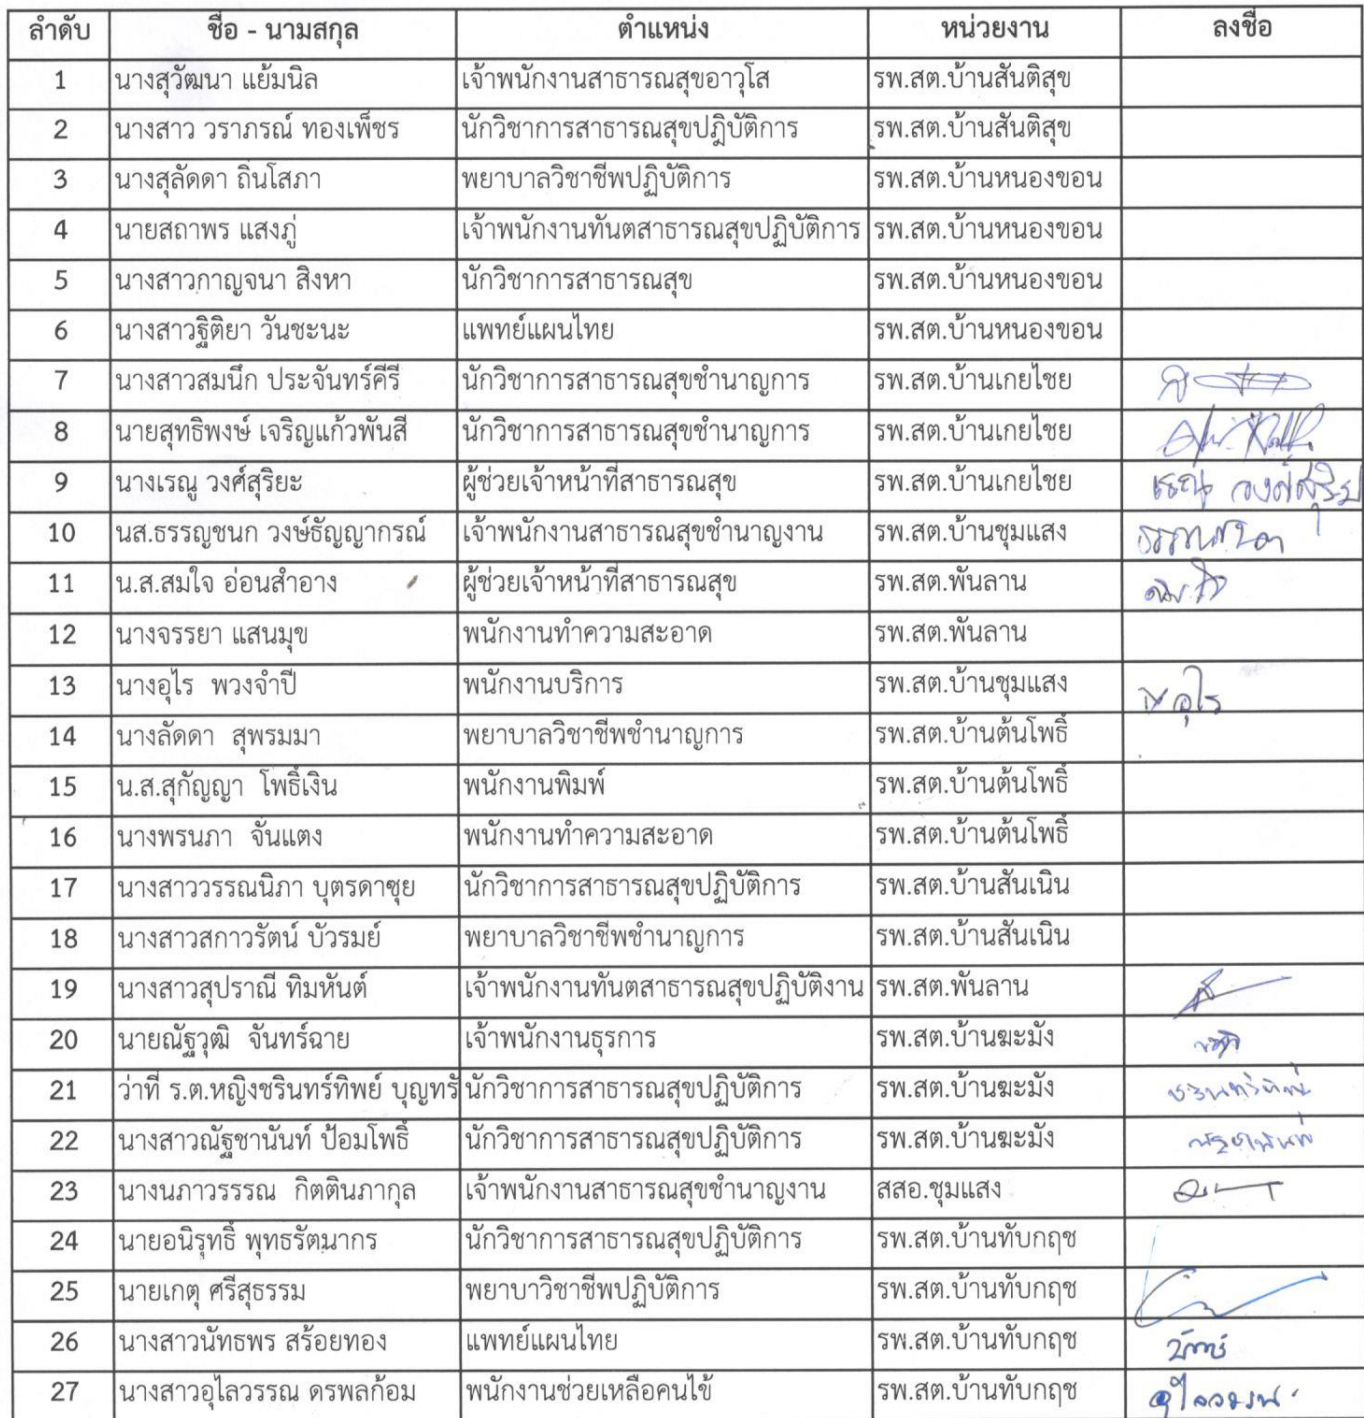 ลำดับ ชื่อ - นามสกุล ตำแหน่ง หน่วยงาน ลงชื่อ
1 นางสุวัฒนา แย้มนิล เจ้าพนักงานสาธารณสุขอาวุโส รพ.สต.บ้านสันติสุข
2 นางสาว วราภรณ์ ทองเพ็ชร นักวิชาการสาธารณสุขปฏิบัติการ รพ.สต.บ้านสันติสุข
3 นางสุลัดดา ถิ่นโสภา พยาบาลวิชาชีพปฏิบัติการ รพ.สต.บ้านหนองขอน
4 นายสถาพร แสงภู่ เจ้าพนักงานทันตสาธารณสุขปฏิบัติการ รพ.สต.บ้านหนองขอน
5 นางสาวกาญจนา สิงหา นักวิชาการสาธารณสุข รพ.สต.บ้านหนองขอน
6 นางสาวฐิติยา วันชะนะ แพทย์แผนไทย รพ.สต.บ้านหนองขอน
7 นางสาวสมนึก ประจันทร์คีรี นักวิชาการสาธารณสุขชำนาญการ รพ.สต.บ้านเกยไชย
8 นายสุทธิพงษ์ เจริญแก้วพันสี นักวิชาการสาธารณสุขชำนาญการ รพ.สต.บ้านเกยไชย
9 นางเรณู วงศ์สุริยะ ผู้ช่วยเจ้าหน้าที่สาธารณสุข รพ.สต.บ้านเกยไชย เรณู
10 นส.ธรรญชนก วงษ์ธัญญากรณ์ เจ้าพนักงานสาธารณสุขชำนาญงาน รพ.สต.บ้านชุมแสง
11 น.ส.สมใจ อ่อนสำอาง ผู้ช่วยเจ้าหน้าที่สาธารณสุข รพ.สต.พันลาน สมใจ
12 นางจรรยา แสนมุข พนักงานทำความสะอาด รพ.สต.พันลาน
13 นางอุไร พวงจำปี พนักงานบริการ รพ.สต.บ้านชุมแสง อุไร
14 นางลัดดา สุพรมมา พยาบาลวิชาชีพชำนาญการ รพ.สต.บ้านต้นโพธิ์
15 น.ส.สุกัญญา โพธิ์เงิน พนักงานพิมพ์ รพ.สต.บ้านต้นโพธิ์
16 นางพรนภา จั่นแตง พนักงานทำความสะอาด รพ.สต.บ้านต้นโพธิ์
17 นางสาววรรณนิภา บุตรดาซุย นักวิชาการสาธารณสุขปฏิบัติการ รพ.สต.บ้านสันเนิน
18 นางสาวสกาวรัตน์ บัวรมย์ พยาบาลวิชาชีพชำนาญการ รพ.สต.บ้านสันเนิน
19 นางสาวสุปราณี ทิมหันต์ เจ้าพนักงานทันตสาธารณสุขปฏิบัติงาน รพ.สต.พันลาน
20 นายณัฐวุฒิ จันทร์ฉาย เจ้าพนักงานธุรการ รพ.สต.บ้านฆะมัง
21 ว่าที่ ร.ต.หญิงชรินทร์ทิพย์ บุญทรั นักวิชาการสาธารณสุขปฏิบัติการ รพ.สต.บ้านฆะมัง
22 นางสาวณัฐชานันท์ ป้อมโพธิ์ นักวิชาการสาธารณสุขปฏิบัติการ รพ.สต.บ้านฆะมัง
23 นางนภาวรรรณ กิตตินภากุล เจ้าพนักงานสาธารณสุขชำนาญงาน สสอ.ชุมแสง
24 นายอนิรุทธิ์ พุทธรัตนากร นักวิชาการสาธารณสุขปฏิบัติการ รพ.สต.บ้านทับกฤช
25 นายเกตุ ศรีสุธรรม พยาบาวิชาชีพปฏิบัติการ รพ.สต.บ้านทับกฤช
26 นางสาวนัทธพร สร้อยทอง แพทย์แผนไทย รพ.สต.บ้านทับกฤช
27 นางสาวอุไลวรรณ ดรพลก้อม พนักงานช่วยเหลือคนไข้ รพ.สต.บ้านทับกฤช อุไลวรรณ